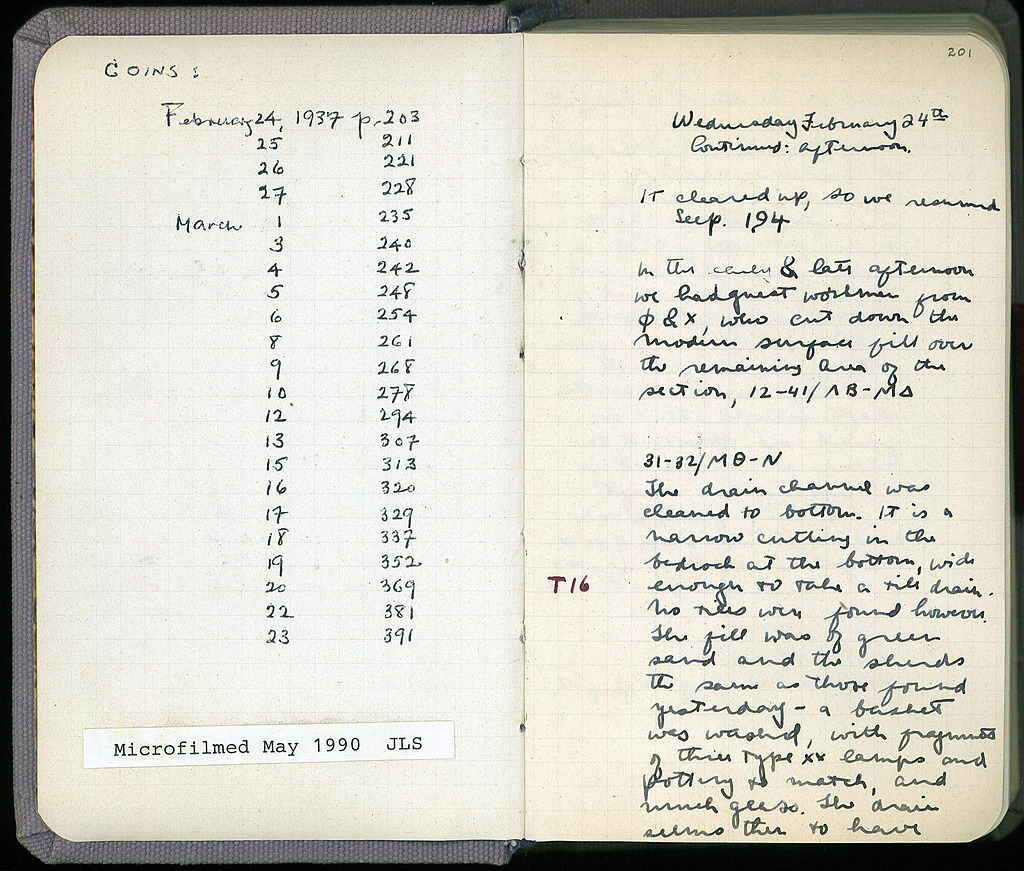 COINS:
February 24, 1937 p. 203
25 211
26 221
27 228
March 1 235
3 240
4 242
5 248
6 254
8 261
9 268
10 278
12 294
13 307
15 313
16 320
17 329
18 337
19 352
20 369
22 381
23 391
Microfilmed May 1990 JLS
201
Wednesday February 24th
Continued: afternoon.
It cleared up, so we resumed
See p. 194
In the early & late afternoon
we had guest workmen from
Φ & X, who cut down the
modern surface fill over
the remaining area of the
section, 12-41/ΛB-MΔ
31-32/MΘ-N
The drain channel was
cleaned to bottom. It is a
narrow cutting in the
bedrock at the bottom, wide
T16
enough to take a tile drain.
No tiles were found however.
The fill was of green
sand and the sherds
the same as those found
yesterday - a basket
was washed, with fragments
of three type XX lamps and
pottery to match, and
much glass. The drain
seems then to have